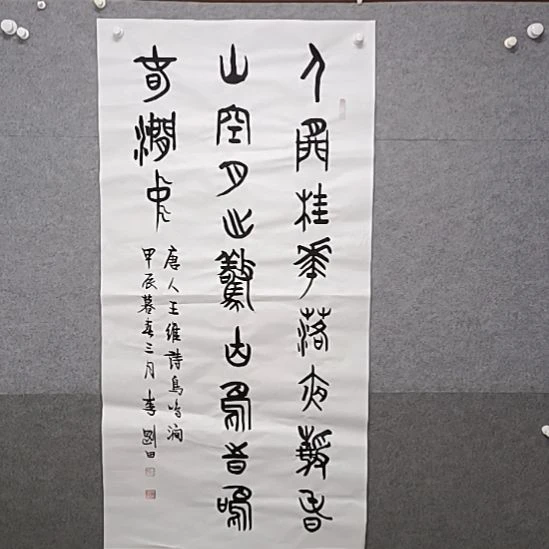 人閒桂華落夜靜春
山空月出驚山鳥時鳴
春澗中
唐人王維詩鳥鳴澗
甲辰暮春三月李剛田